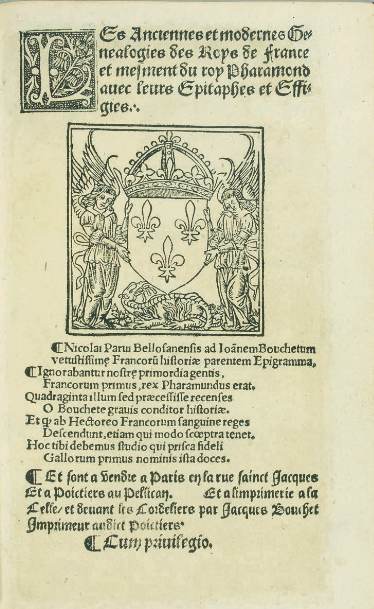 LEs Anciennes et modernes Ge-
nealogies des Roys de France
et mesment du roy Pharamond
auec leurs Epitaphes et Effi-
gies.
¶Nicolai Parui Bellosanensis ad Ioãnem Bouchetum
vetustissimę Francorũ historiæ parentem Epigramma.
¶Ignorabantur nostrę primordia gentis,
Francorum primus, rex Pharamundus erat.
Quadraginta illum sed præcessisse recenses
O Bouchete grauis conditor historiæ.
Et ꝙ ab Hectoreo Francorum sanguine reges
Descendunt, etiam qui modo sceptra tenet.
Hoc tibi debemus studio qui prisca fideli
Gallorum primus nominis ista doces.
¶ Et sont a vendre a Paris en la rue sainct Jacques
Et a Poictiers au Pellican. Et a limprimerie a la
Celle/ et deuant les Cordeliers par Jacques Bouchet
Imprimeur audict Poictiers.
¶ Cum priuilegio.